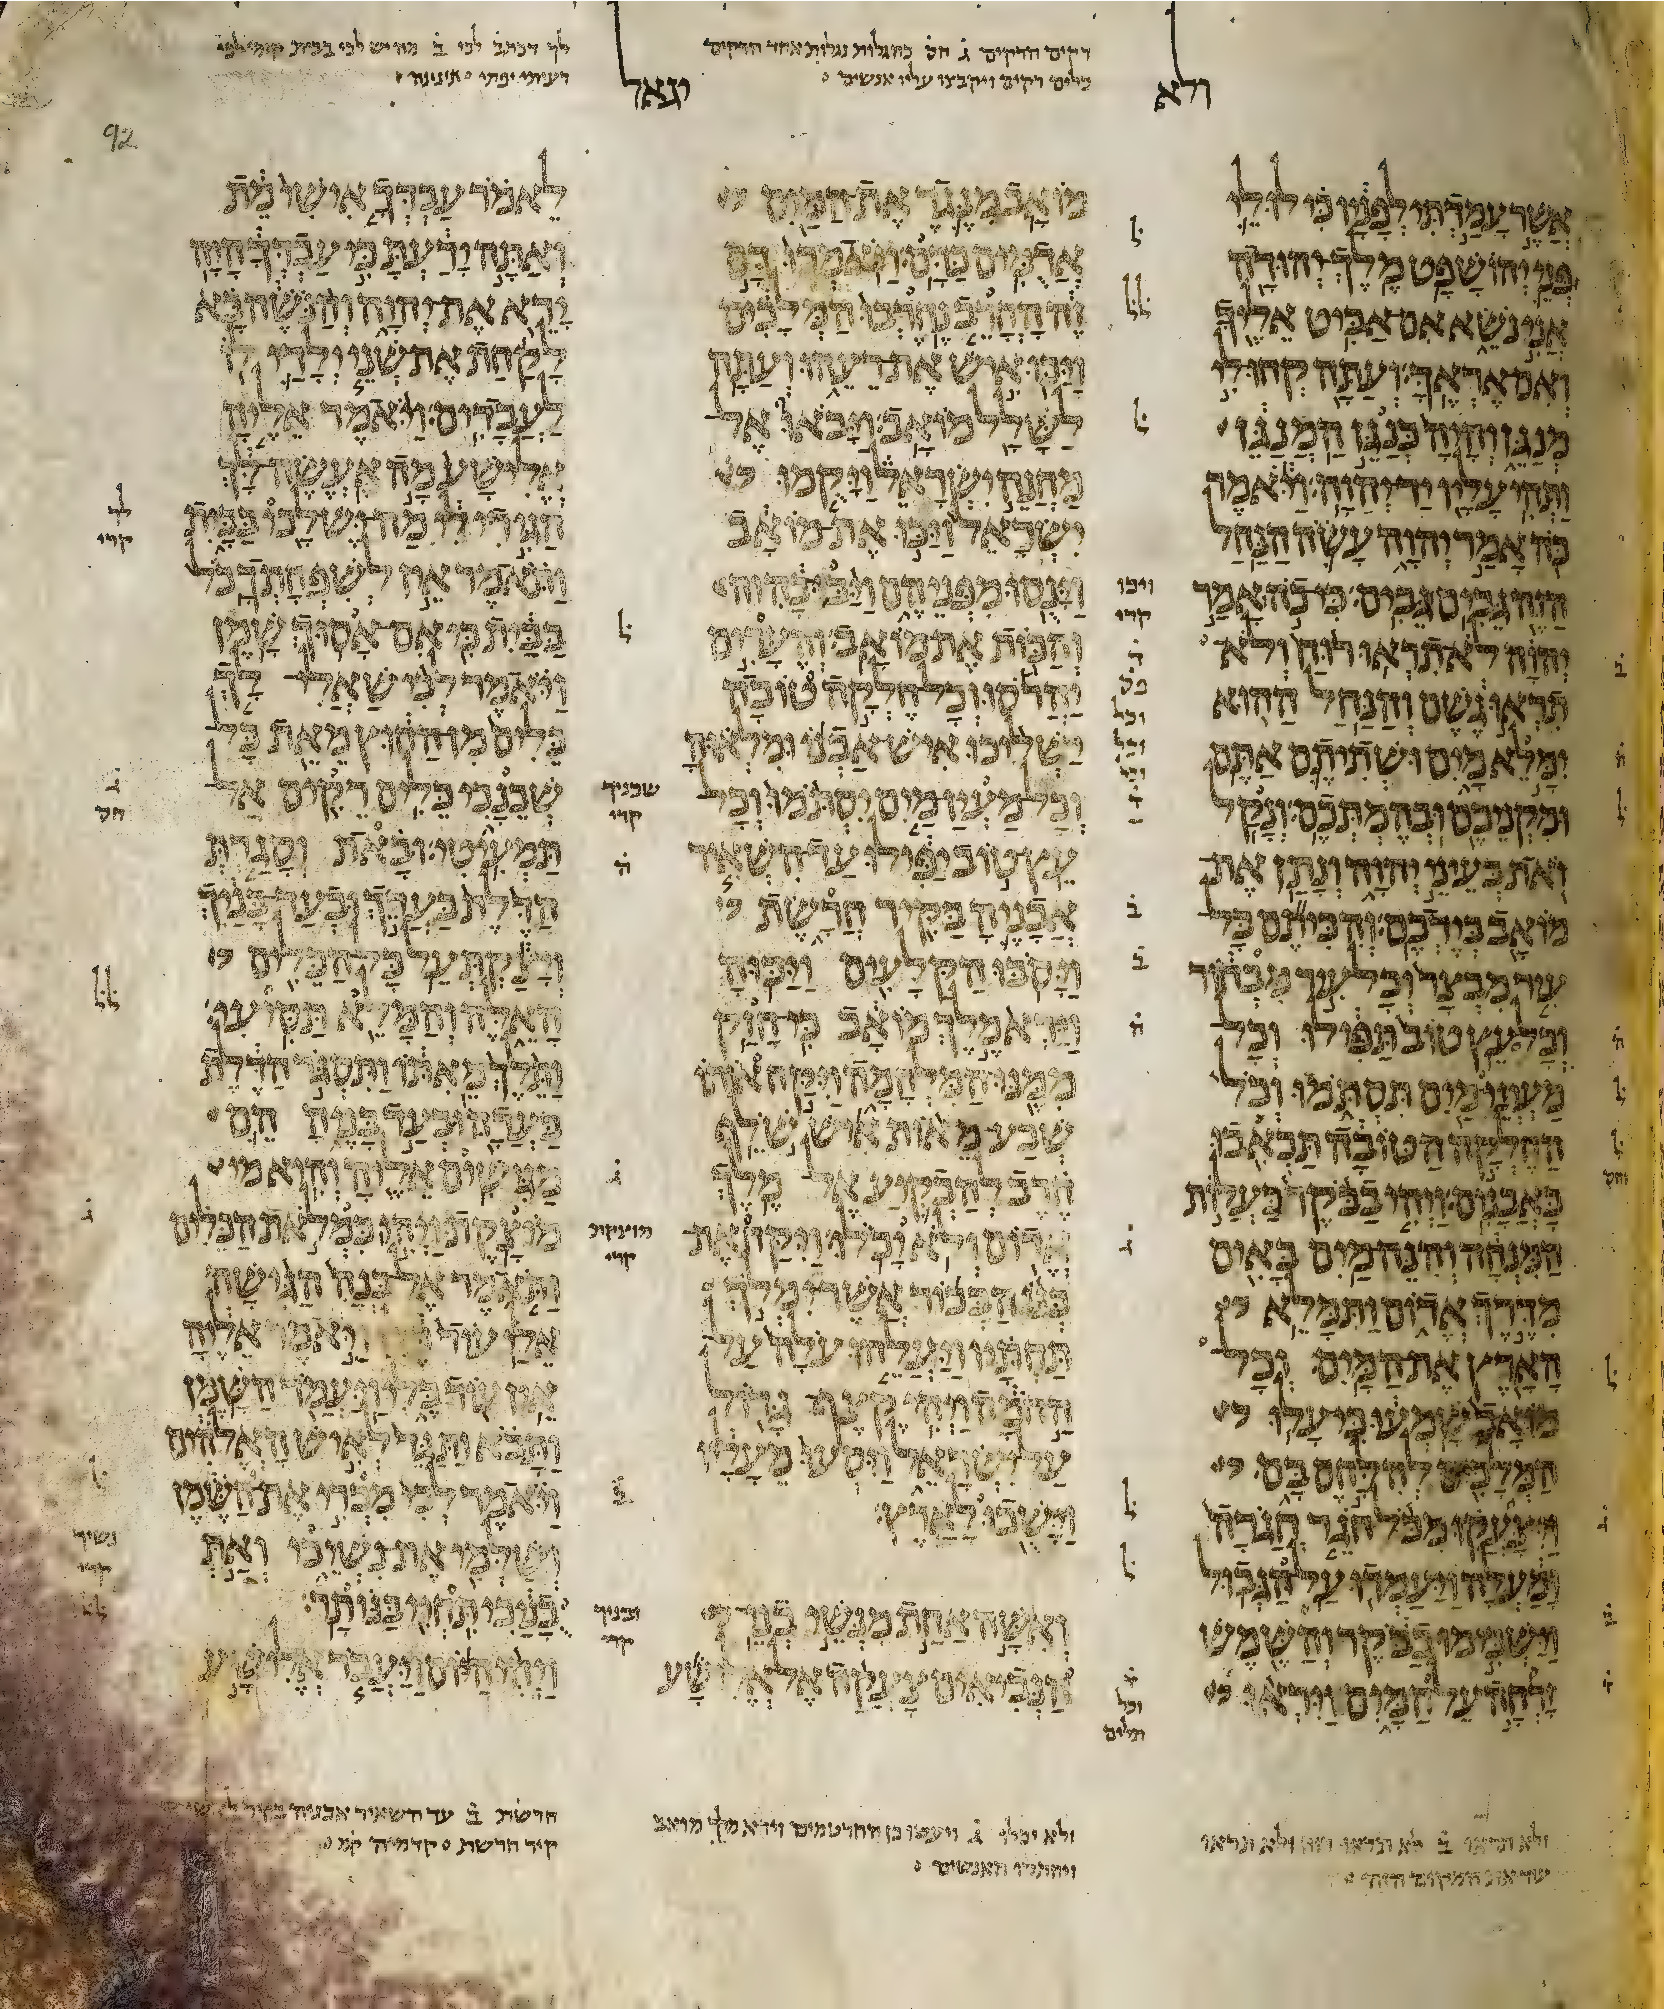 דקים הדקים ג̇ חס̇ כהגלות נגלות אחד הרקים
כלים רקים ויקבצו עליו אנשים
לך דכתב̇ לכי ב̇ מה יש לכי בבית קומי לכי
רעיתי יפתי
ולא
יגאל
92
אשר עמדתי לפניו כי לולי
פני יהושפט מלך יהודה
אני נשא אם אביט אליך
ואם אראך ועתה קחו לי
מנגן והיה כנגן המנגן
ותהי עליו יד יהוה ויאמר
כה אמר יהוה עשה הנחל
הזה גבים גבים כי כה אמר
יהוה לא תראו רוח ולא
תראו גשם והנחל ההוא
ימלא מים ושתיתם אתם
ומקניכם ובהמתכם ונקל
זאת בעיני יהוה ונתן את
מואב בידכם והכיתם כל
עיר מבצר וכל עיר מבחור
וכל עץ טוב תפילו וכל
מעיני מים תסתמו וכל
החלקה הטובה תכאבו
באבנים ויהי בבקר כעלות
המנחה והנה מים באים
מדרך אדום ותמלא
הארץ את המים וכל
מואב שמעו כי עלו
המלכים להלחם בם
ויצעקו מכל חגר חגרה
ומעלה ויעמדו על הגבול
וישכימו בבקר והשמש
זרחה על המים ויראו
ויכו
קרי
מואב מנגד את המים
אדמים כדם ויאמרו דם
זה החרב נחרבו המלכים
ויכו איש את רעהו ועתה
לשלל מואב ויבאו אל
מחנה ישראל ויקמו
ישראל ויכו את מואב
וינסו מפניהם ויבו בה
והכות את מואב והערים
יהרסו וכל חלקה טובה
ישליכו איש אבנו ומלאוה
וכל מעין מים יסתמו וכל
עץ טוב יפילו עד השאיר
אבניה בקיר חרשת
ויסבו הקלעים ויכוה
וירא מלך מואב כי חזק
ממנו המלחמה ויקח אתו
שבע מאות איש שלף
חרב להבקיע אל מלך
אדום ולא יכלו ויקח את
בנו הבכור אשר ימלך
תחתיו ויעלהו עלה על
החמה ויהי קצף גדול
על ישראל ויסעו מעליו
וישבו לארץ
ואשה אחת מנשי בני
הנביאים צעקה אל אלישע
שכניך
קרי
מוצקת
קרי
ובניך
קרי
לאמר עבדך אישי מת
ואתה ידעת כי עבדך היה
ירא את יהוה והנשה בא
לקחת את שני ילדי לו
לעבדים ויאמר אליה
אלישע מה אעשה לך
הגידי לי מה יש לכי בבית
ותאמר אין לשפחתך כל
בבית כי אם אסוך שמן
ויאמר לכי שאלי לך
כלים מן החוץ מאת כל
שכנכי כלים רקים אל
תמעיטי ובאת וסגרת
הדלת בעדך ובעד בניך
ויצקת על כל הכלים
האלה והמלא תסיעי
ותלך מאתו ותסגר הדלת
בעדה ובעד בניה הם
מגשים אליה והיא מי
מיצקת ויהי כמלאת הכלים
ותאמר אל בנה הגישה
אלי עוד כלי ויאמר אליה
אין עוד כלי ויעמד השמן
ותבא ותגד לאיש האלהים
ויאמר לכי מכרי את השמן
ושלמי את נשיכי ואת
בניכי תחיי בנותר
ויהי היום ויעבר אלישע
לך
קרי
ג̇
חס̇
נשיך
קרי
ולא תראו ב̇ לא תראו רוח ולא תראו
עוד את המקום הזה
ולא יכלו ג̇ ויעשו כן החרטמים וירא מלך מואב
ויחתרו האנשים
חרשת ב̇ עד השאיר אבניה בקיר
קיר חרשת קדמיה קמ̇